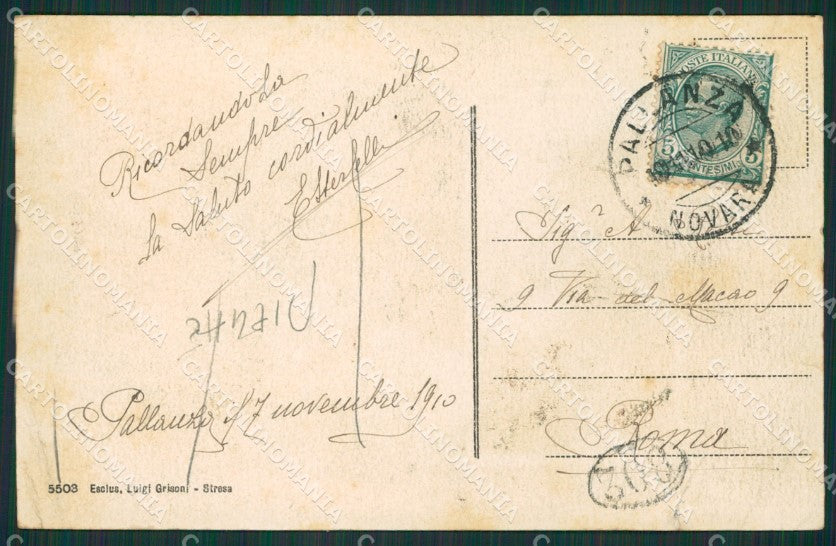 Ricordandola
Sempre
La Saluto cordialmente
Pallanza 17 novembre 1910
5503 Esclus. Luigi Grisoni - Stresa
POSTE ITALIANE
5 5
CENTESIMI
PALLANZA
10-10
* NOVARA *
Sig.r A
9 Via del Macao 9
Roma
308
CARTOLINOMANIA